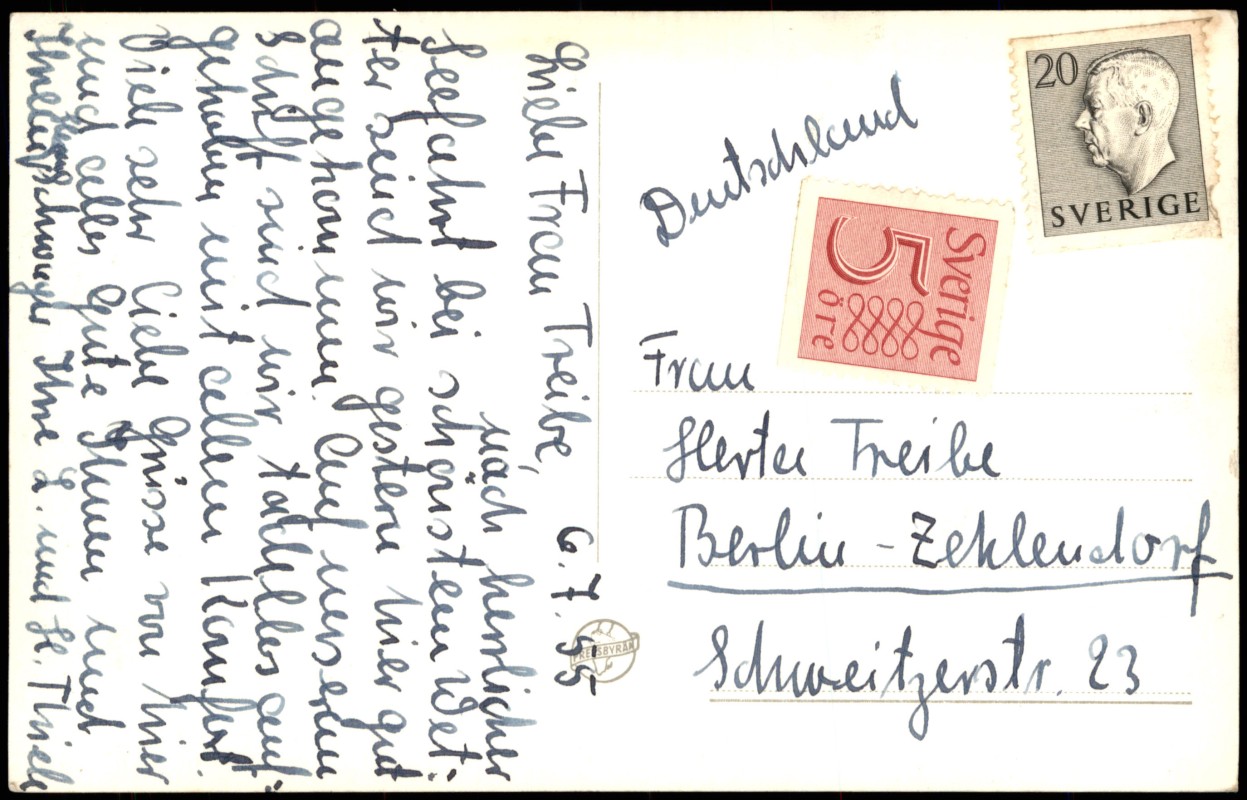 Liebe Frau Treibe, 6.7.55
nach herrlicher
Seefahrt bei schönstem Wet-
ter sind wir gestern hier gut
angekommen. Auf unserem
Schiff sind wir tadellos auf-
gehoben mit allem Komfort.
Viele sehr liebe Grüsse von hier
und alles Gute Ihnen und
Ihrer Schwager Ihre L. und H. Thiele
Deutschland
20
SVERIGE
Sverige
5
öre
Frau
Herta Treibe
Berlin-Zehlendorf
Schweitzerstr. 23
PRESSBYRÅN